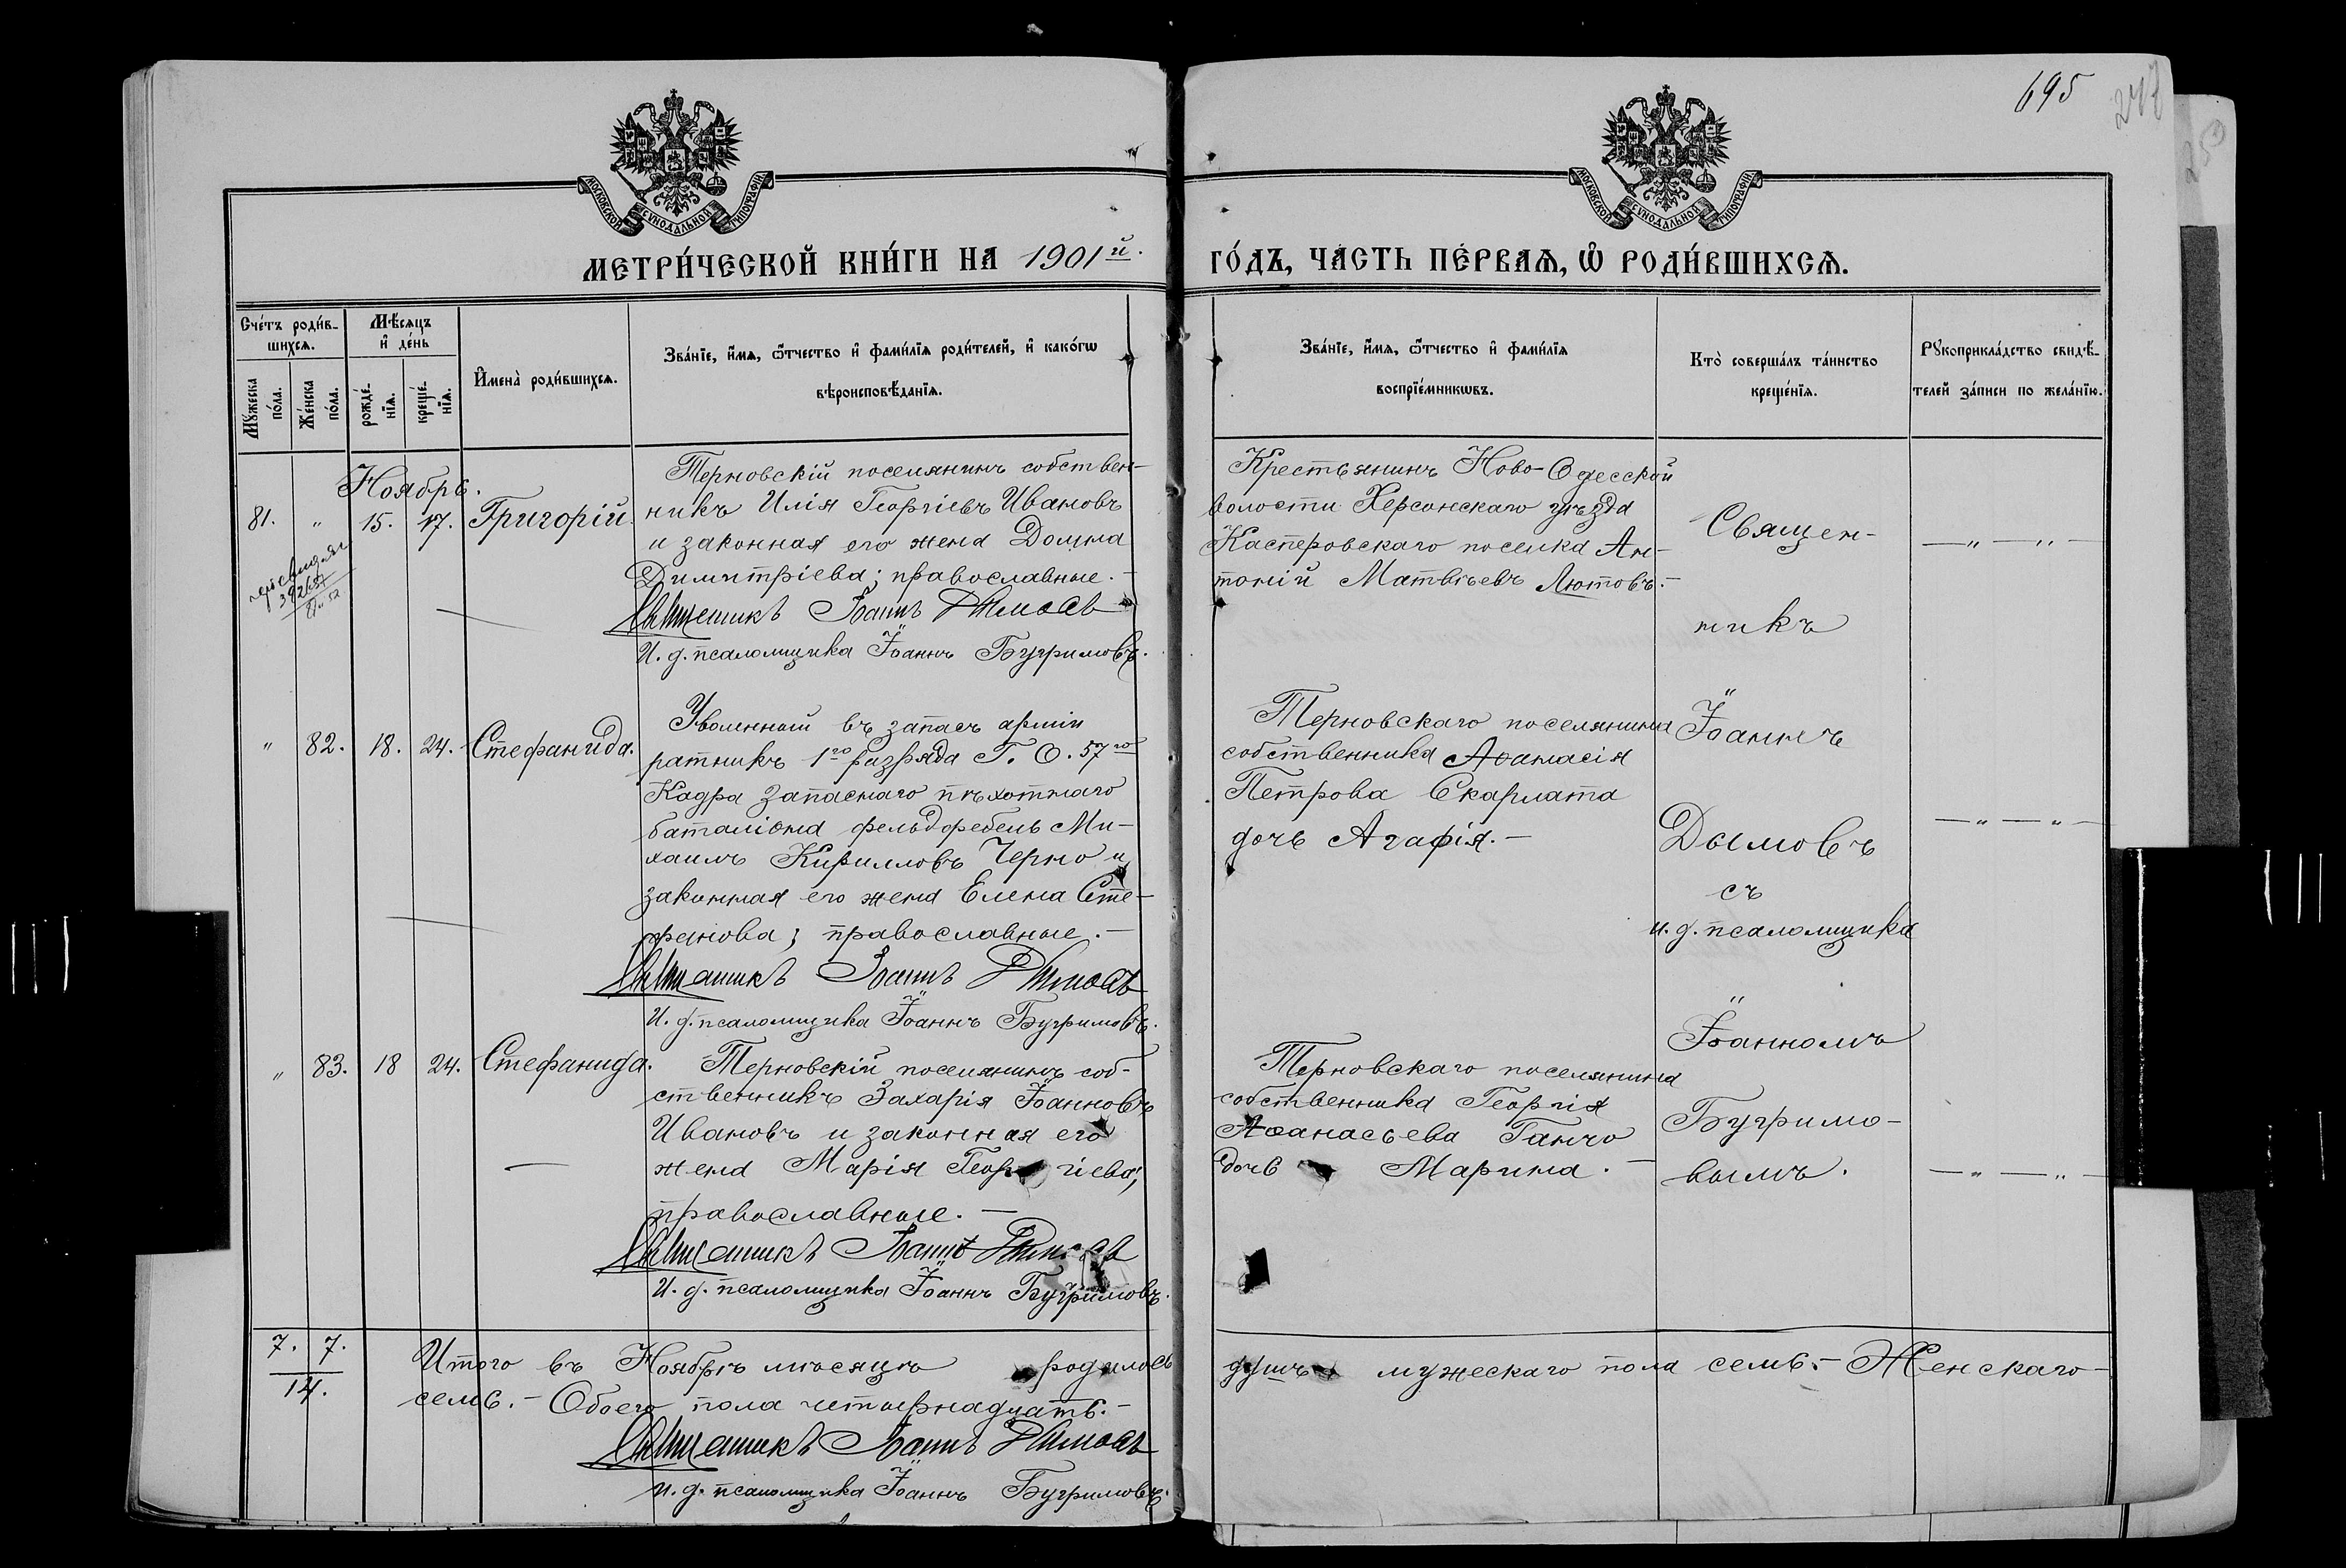 695
МОСКОВСКОЙ СѴНОДАЛЬНОЙ ТИПОГРАФІИ
МОСКОВСКОЙ СѴНОДАЛЬНОЙ ТИПОГРАФІИ
МЕТРИ́ЧЕСКОЙ КНИ́ГИ НА 1901й.
ГО́ДЪ, ЧА́СТЬ ПЕ́РВАѦ, Ѡ҆ РОДИ́ВШИХСѦ.
Сче́тъ роди́в-
шихсѧ.
Мѣ́сѧцъ
и҆ де́нь
Мꙋ́жеска
по́ла.
Же́нска
по́ла.
рожде́-
нїѧ.
креще́-
нїѧ.
И҆мена̀ роди́вшихсѧ.
Зва́нїе, и҆́мѧ, ѻ҆́тчество и҆ фами́лїѧ роди́телей, и҆ како́гѡ
вѣроисповѣ́данїѧ.
Зва́нїе, и҆́мѧ, ѻ҆́тчество и҆ фами́лїѧ
воспрїе́мникѡвъ.
Кто̀ соверша́лъ та́инство
креще́нїѧ.
Рꙋкоприкла́дство свидѣ́-
телей за́писи по жела́нїю.
Ноябрь.
81. " 15. 17. Григорій.
Терновскій поселянинъ собствен-
никъ Илія Георгіевъ Ивановъ
и законная его жена Домна
Димитріева; православные.-
Священникъ Іоаннъ Дымовъ
И. д. псаломщика Іоаннъ Бугримовъ.
Крестьянинъ Ново-Одесской
волости Херсонскаго уѣзда
Касперовскаго поселка Ан-
тоній Матвѣевъ Лютовъ.-
Священ-
никъ
— " — " —
" 82. 18. 24. Стефанида.
Уволенный въ запасъ арміи
ратникъ 1го разряда Г. О. 57го
Кадра Запаснаго пѣхотнаго
баталіона фельдфебель Ми-
хаилъ Кирилловъ Черно и
законная его жена Елена Сте-
фанова; православные.-
Священникъ Іоаннъ Дымовъ
И. д. псаломщика Іоаннъ Бугримовъ.
Терновскаго поселянина
собственника Аѳанасія
Петрова Скарлата
дочь Агафія.-
Іоаннъ
Дымовъ
съ
и. д. псаломщика
— " — " —
" 83. 18 24. Стефанида.
Терновскій поселянинъ соб-
ственникъ Захарія Іоанновъ
Ивановъ и законная его
жена Марія Георгіева;
православные.-
Священникъ Іоаннъ Дымовъ
И. д. псаломщика Іоаннъ Бугримовъ.
Терновскаго поселянина
собственника Георгія
Аѳанасьева Ганчо
дочь Марина.-
Іоанномъ
Бугримо-
вымъ.
— " — " —
7. 7.
14.
Итого въ Ноябрѣ мѣсяцѣ родилось душъ мужескаго пола семь.- Женскаго-
семь.- Обоего пола четырнадцать.-
Священникъ Іоаннъ Дымовъ
И. д. псаломщика Іоаннъ Бугримовъ.